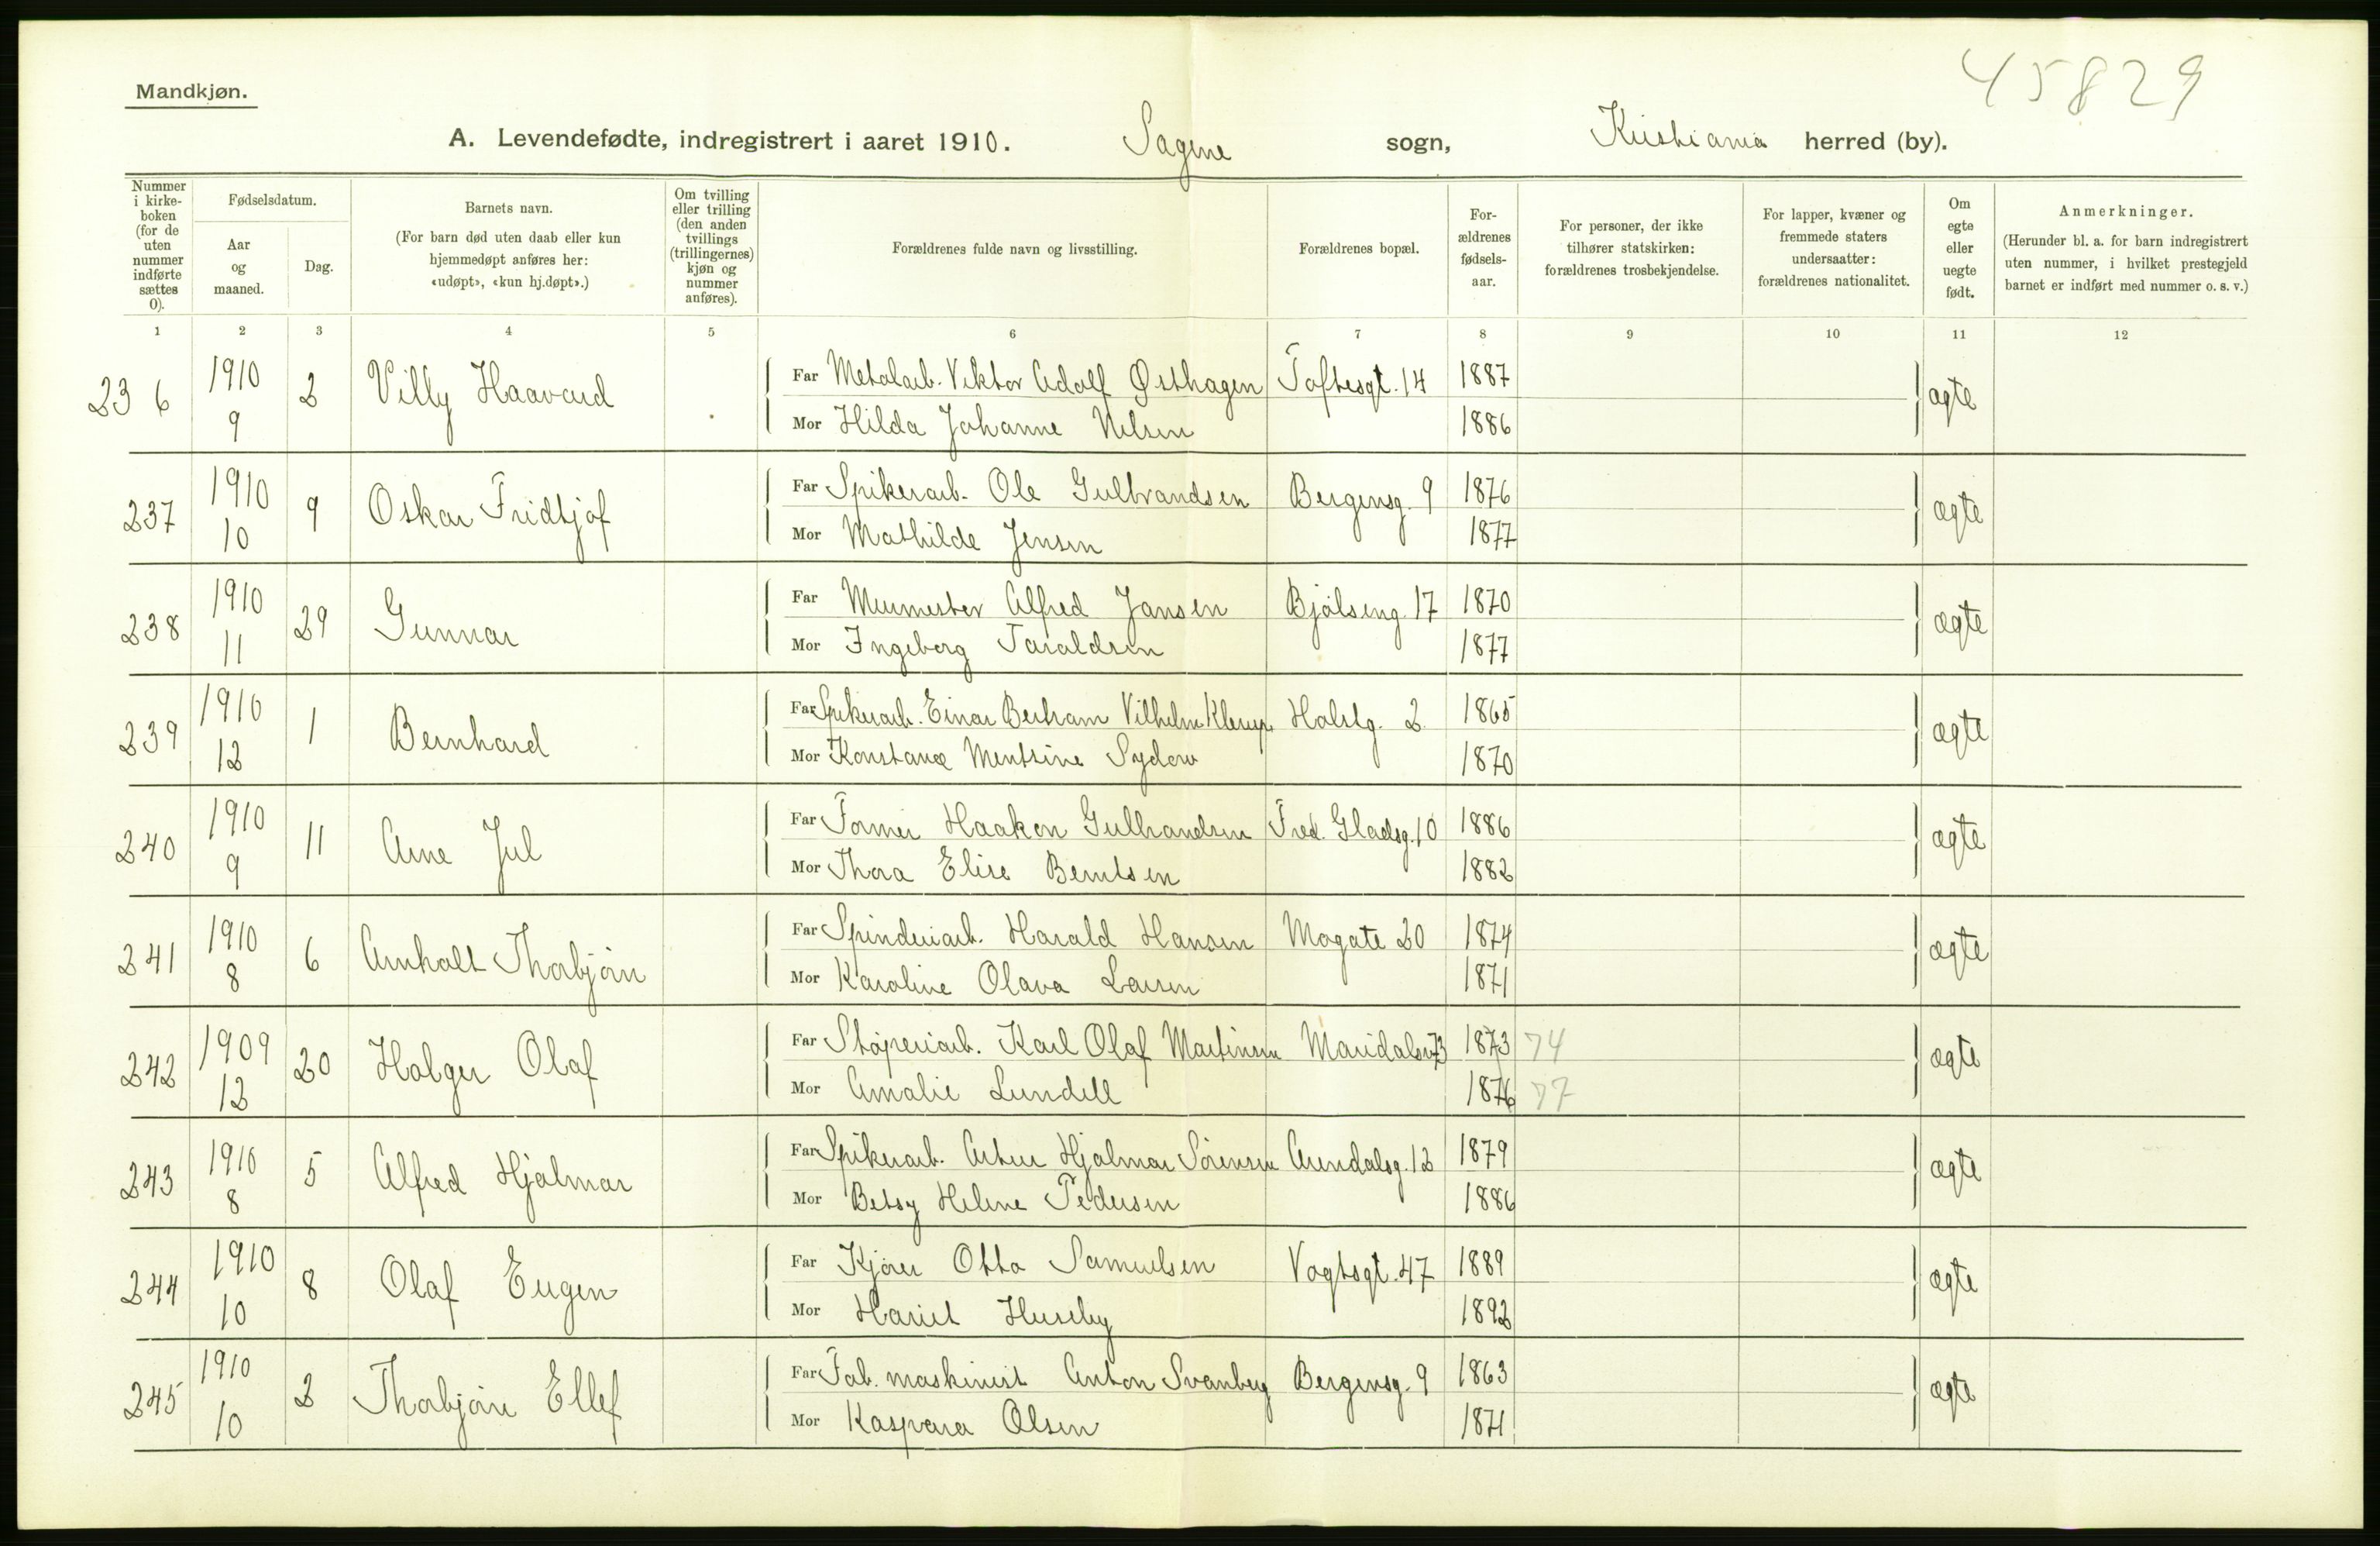 45829
Mandkjøn.
A. Levendefødte, indregistrert i aaret 1910. Sagene sogn, Kristiania herred (by).
Nummer i kirkeboken (for de uten nummer indførte sættes 0).
Fødselsdatum.
Aar og maaned.
Dag.
Barnets navn.
(For barn død uten daab eller kun hjemmedøpt anføres her: «udøpt», «kun hj.døpt».)
Om tvilling eller trilling (den anden tvillings (trillingernes) kjøn og nummer anføres).
Forældrenes fulde navn og livsstilling.
Forældrenes bopæl.
Forældrenes fødselsaar.
For personer, der ikke tilhører statskirken: forældrenes trosbekjendelse.
For lapper, kvæner og fremmede staters undersaatter: forældrenes nationalitet.
Om egte eller uegte født.
Anmerkninger.
(Herunder bl. a. for barn indregistrert uten nummer, i hvilket prestegjeld barnet er indført med nummer o. s. v.)
1 2 3 4 5 6 7 8 9 10 11 12
236 1910 9 2 Villy Haavard
Far Metalarb. Viktor Adolf Østhagen Toftesgt. 14 1887 ægte
Mor Hilda Johanne Nilsen 1886
237 1910 10 9 Oskar Fridtjof
Far Spikerarb. Ole Gulbrandsen Bergensg. 9 1876 ægte
Mor Mathilde Jensen 1877
238 1910 11 29 Gunnar
Far Murmester Alfred Jansen Bjølseng. 17 1870 ægte
Mor Ingeborg Taraldsen 1877
239 1910 12 1 Bernhard
Far Spikerarb. Einar Bertram Vilhelm Klerup Holstg. 2 1865 ægte
Mor Konstance Mentsine Sydow 1870
240 1910 9 11 Arne Jul
Far Former Haakon Gulbrandsen Fred. Gladsg. 10 1886 ægte
Mor Thora Elise Berntsen 1882
241 1910 8 6 Arnholt Thorbjørn
Far Spinderiarb. Harald Hansen Mogata 20 1874 ægte
Mor Karoline Olava Larsen 1871
242 1909 12 20 Holger Olaf
Far Støperiarb. Karl Olaf Martinsen Maridalsv. 73 1873 74 ægte
Mor Amalie Lundell 1876 77
243 1910 8 5 Alfred Hjalmar
Far Spikerarb. Artur Hjalmar Sørensen Arendalsg. 12 1879 ægte
Mor Betsy Helene Pedersen 1886
244 1910 10 8 Olaf Eugen
Far Kjører Otto Samuelsen Vogtsgt. 47 1889 ægte
Mor Hariet Huseby 1892
245 1910 10 2 Thorbjørn Ellef
Far Fab. maskinist Anton Svanberg Bergensg. 9 1863 ægte
Mor Kaspara Olsen 1871